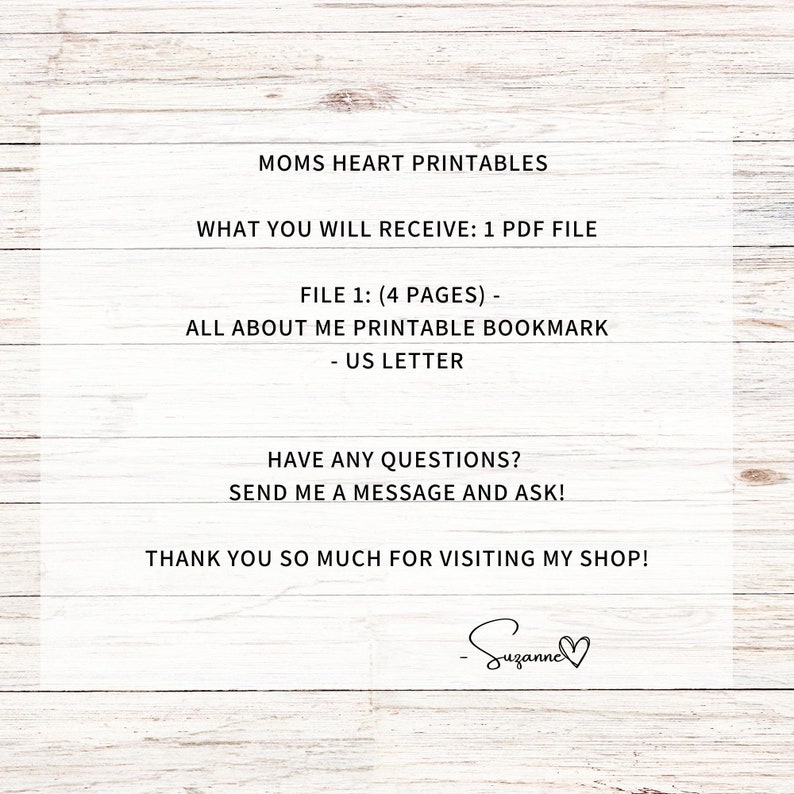 MOMS HEART PRINTABLES
WHAT YOU WILL RECEIVE: 1 PDF FILE
FILE 1: (4 PAGES) -
ALL ABOUT ME PRINTABLE BOOKMARK
- US LETTER
HAVE ANY QUESTIONS?
SEND ME A MESSAGE AND ASK!
THANK YOU SO MUCH FOR VISITING MY SHOP!
-Suzanne